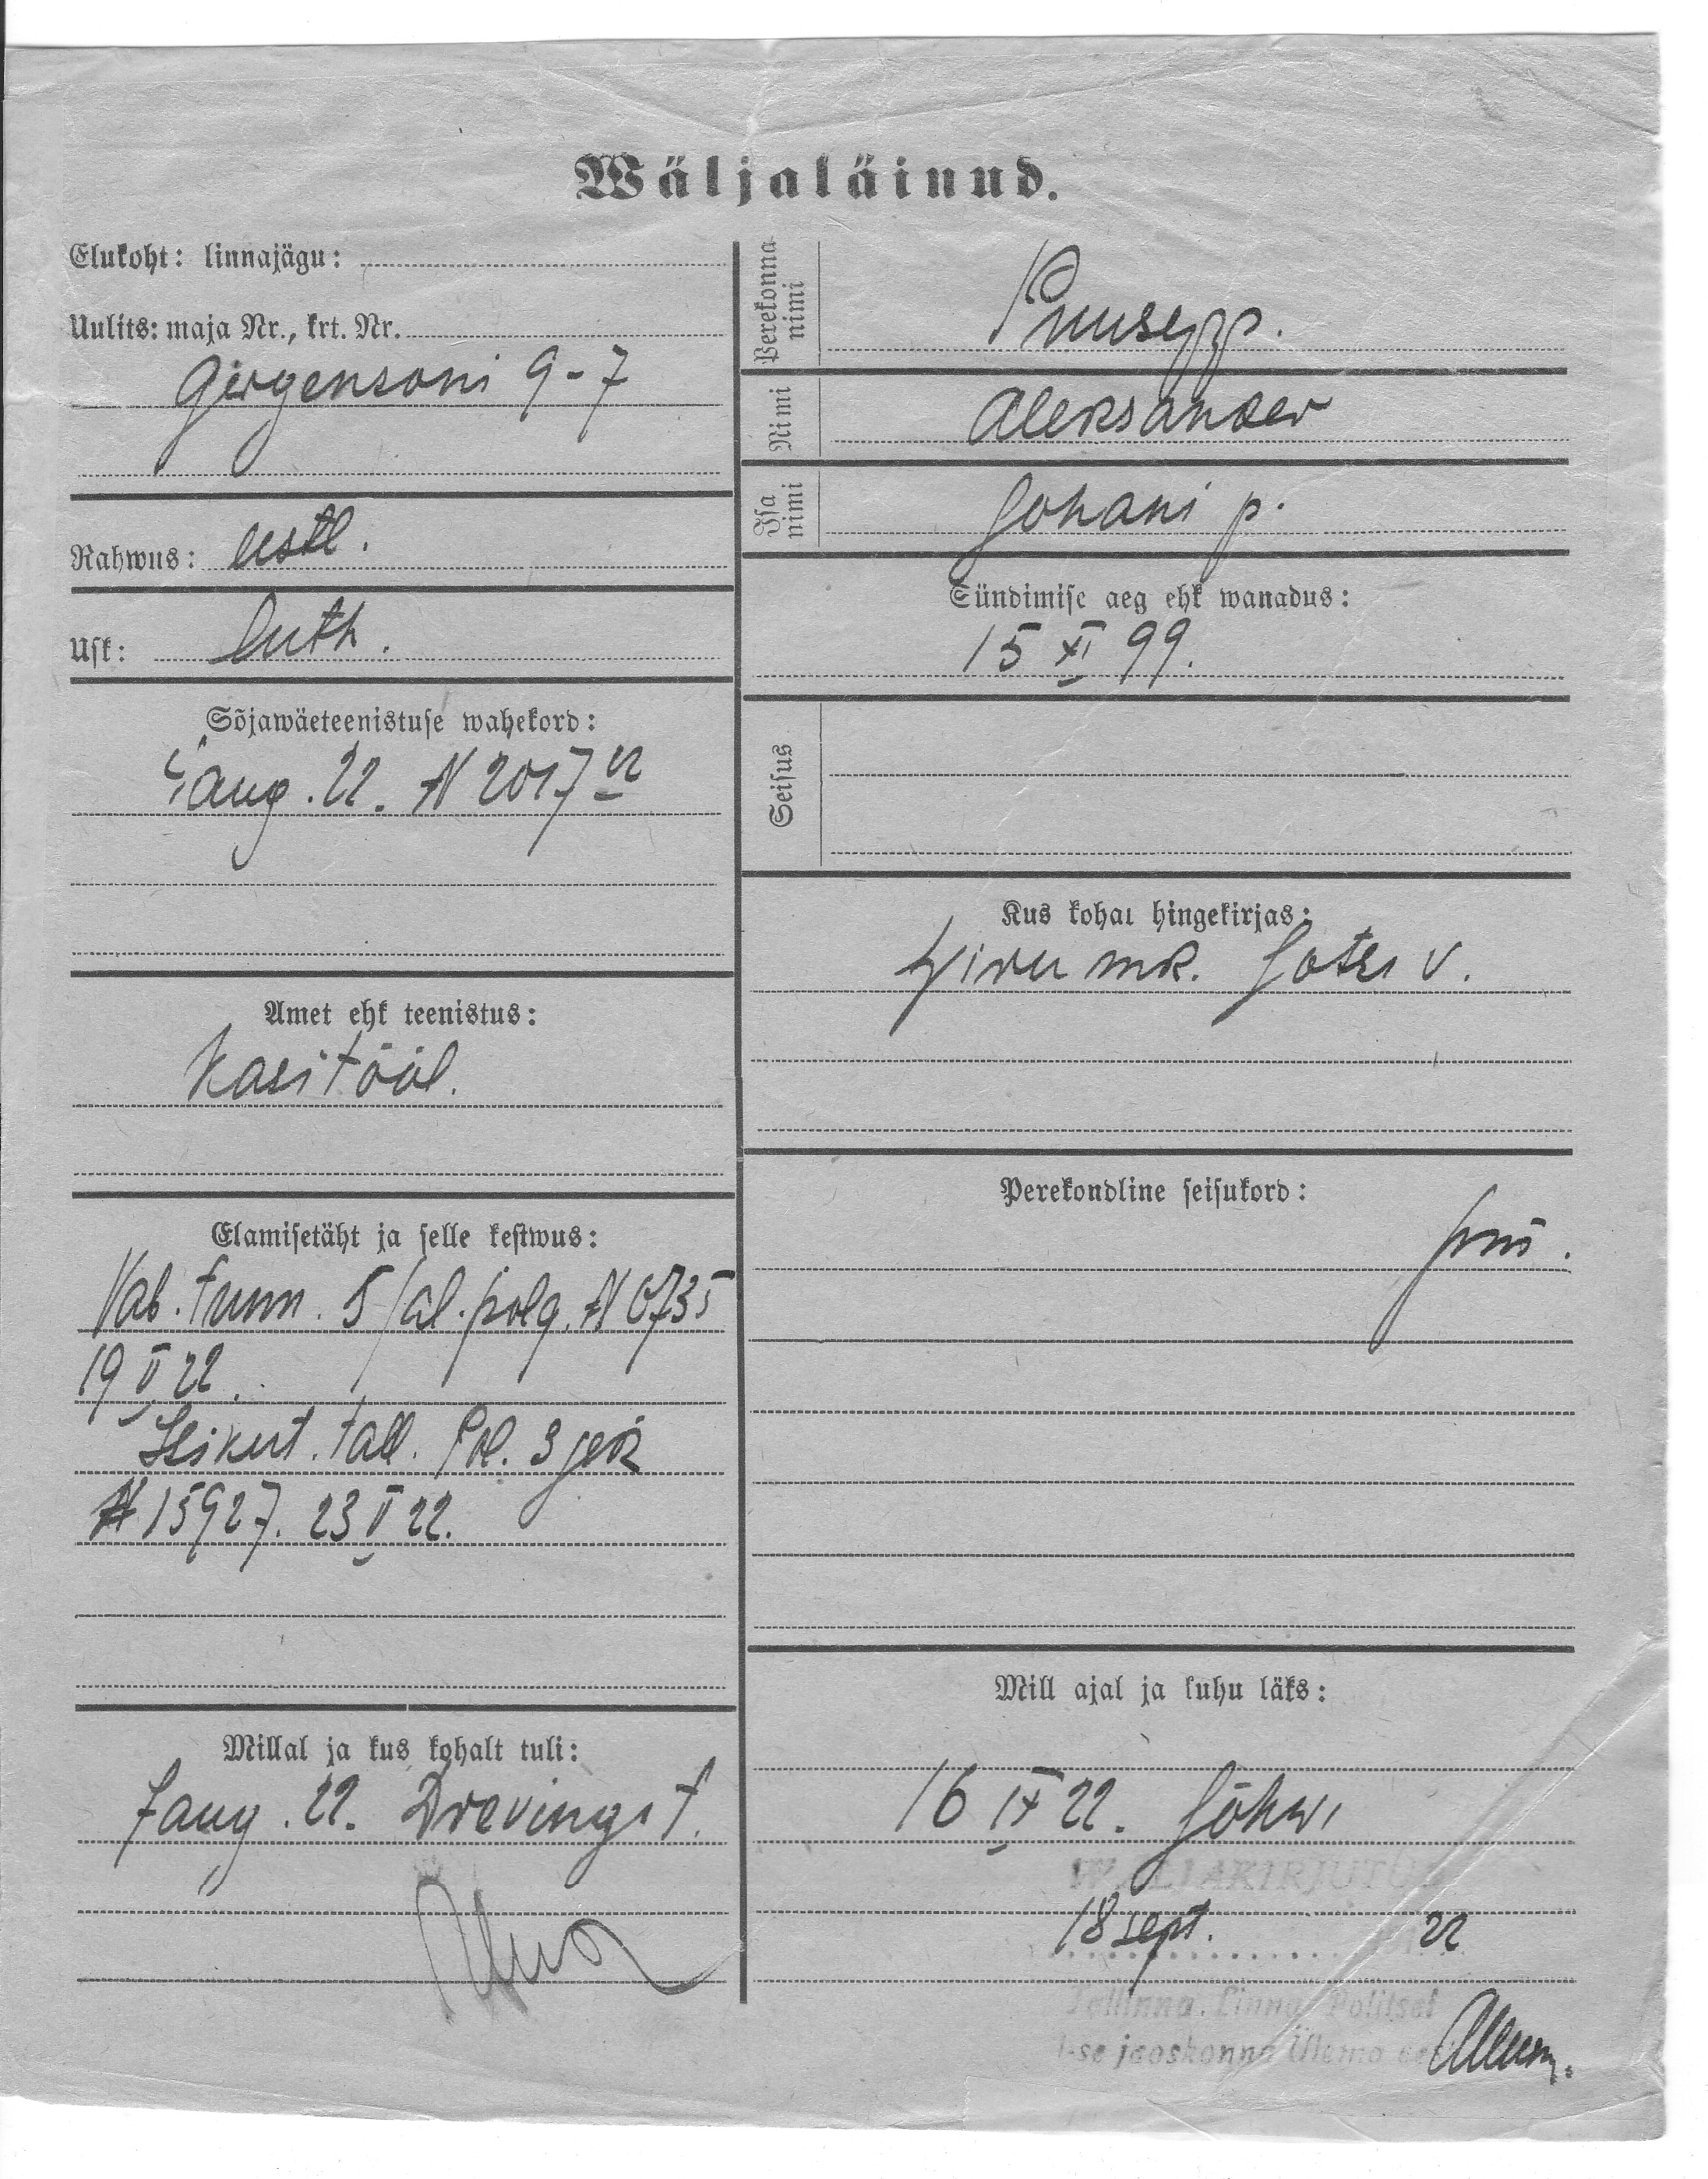 Wäljaläinud.
Elukoht: linnajägu:
Uulits: maja Nr., krt. Nr.
Girgensoni 9-7
Rahwus: eestl.
Usk: luth.
Sõjawäeteenistuse wahekord:
aug. 22. N 2017
Amet ehk teenistus:
Käsitööl.
Elamisetäht ja selle kestwus:
Vab. tunn. 5 jal. polg. N 0735
19 V 22.
Isikut. tall. Pol. 3 jsk
N 15927. 23 V 22.
Millal ja kus kohalt tuli:
7 aug. 22. Drevingi t.
Perekonna-
nimi
Puusepp.
Nimi
Aleksander
Isa
nimi
Johani p.
Sündimise aeg ehk wanadus:
15 XI 99.
Seisus
Kus kohal hingekirjas:
Wiru mk. Jõhwi v.
Perekondline seisukord:
Mill ajal ja kuhu läks:
16 IX 22. Jõhwi
WÄLJAKIRJUTUD
18 sept. 22
Tallinna Linna Politsei
I-se jaoskonna Ülema